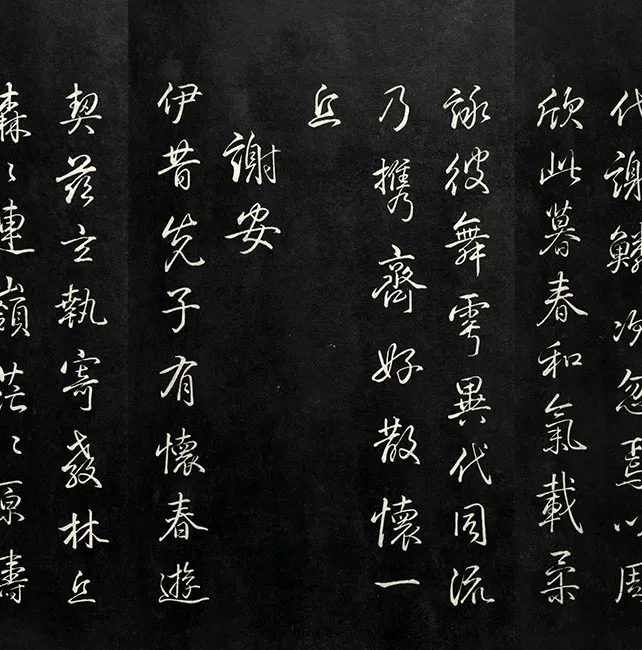 代謝鱗次忽焉以周
欣此暮春和氣載柔
詠彼舞雩異代同流
乃携齊好散懷一
丘
謝安
伊昔先子有懷春遊
契茲言執寄敖林丘
森々連嶺茫々原疇